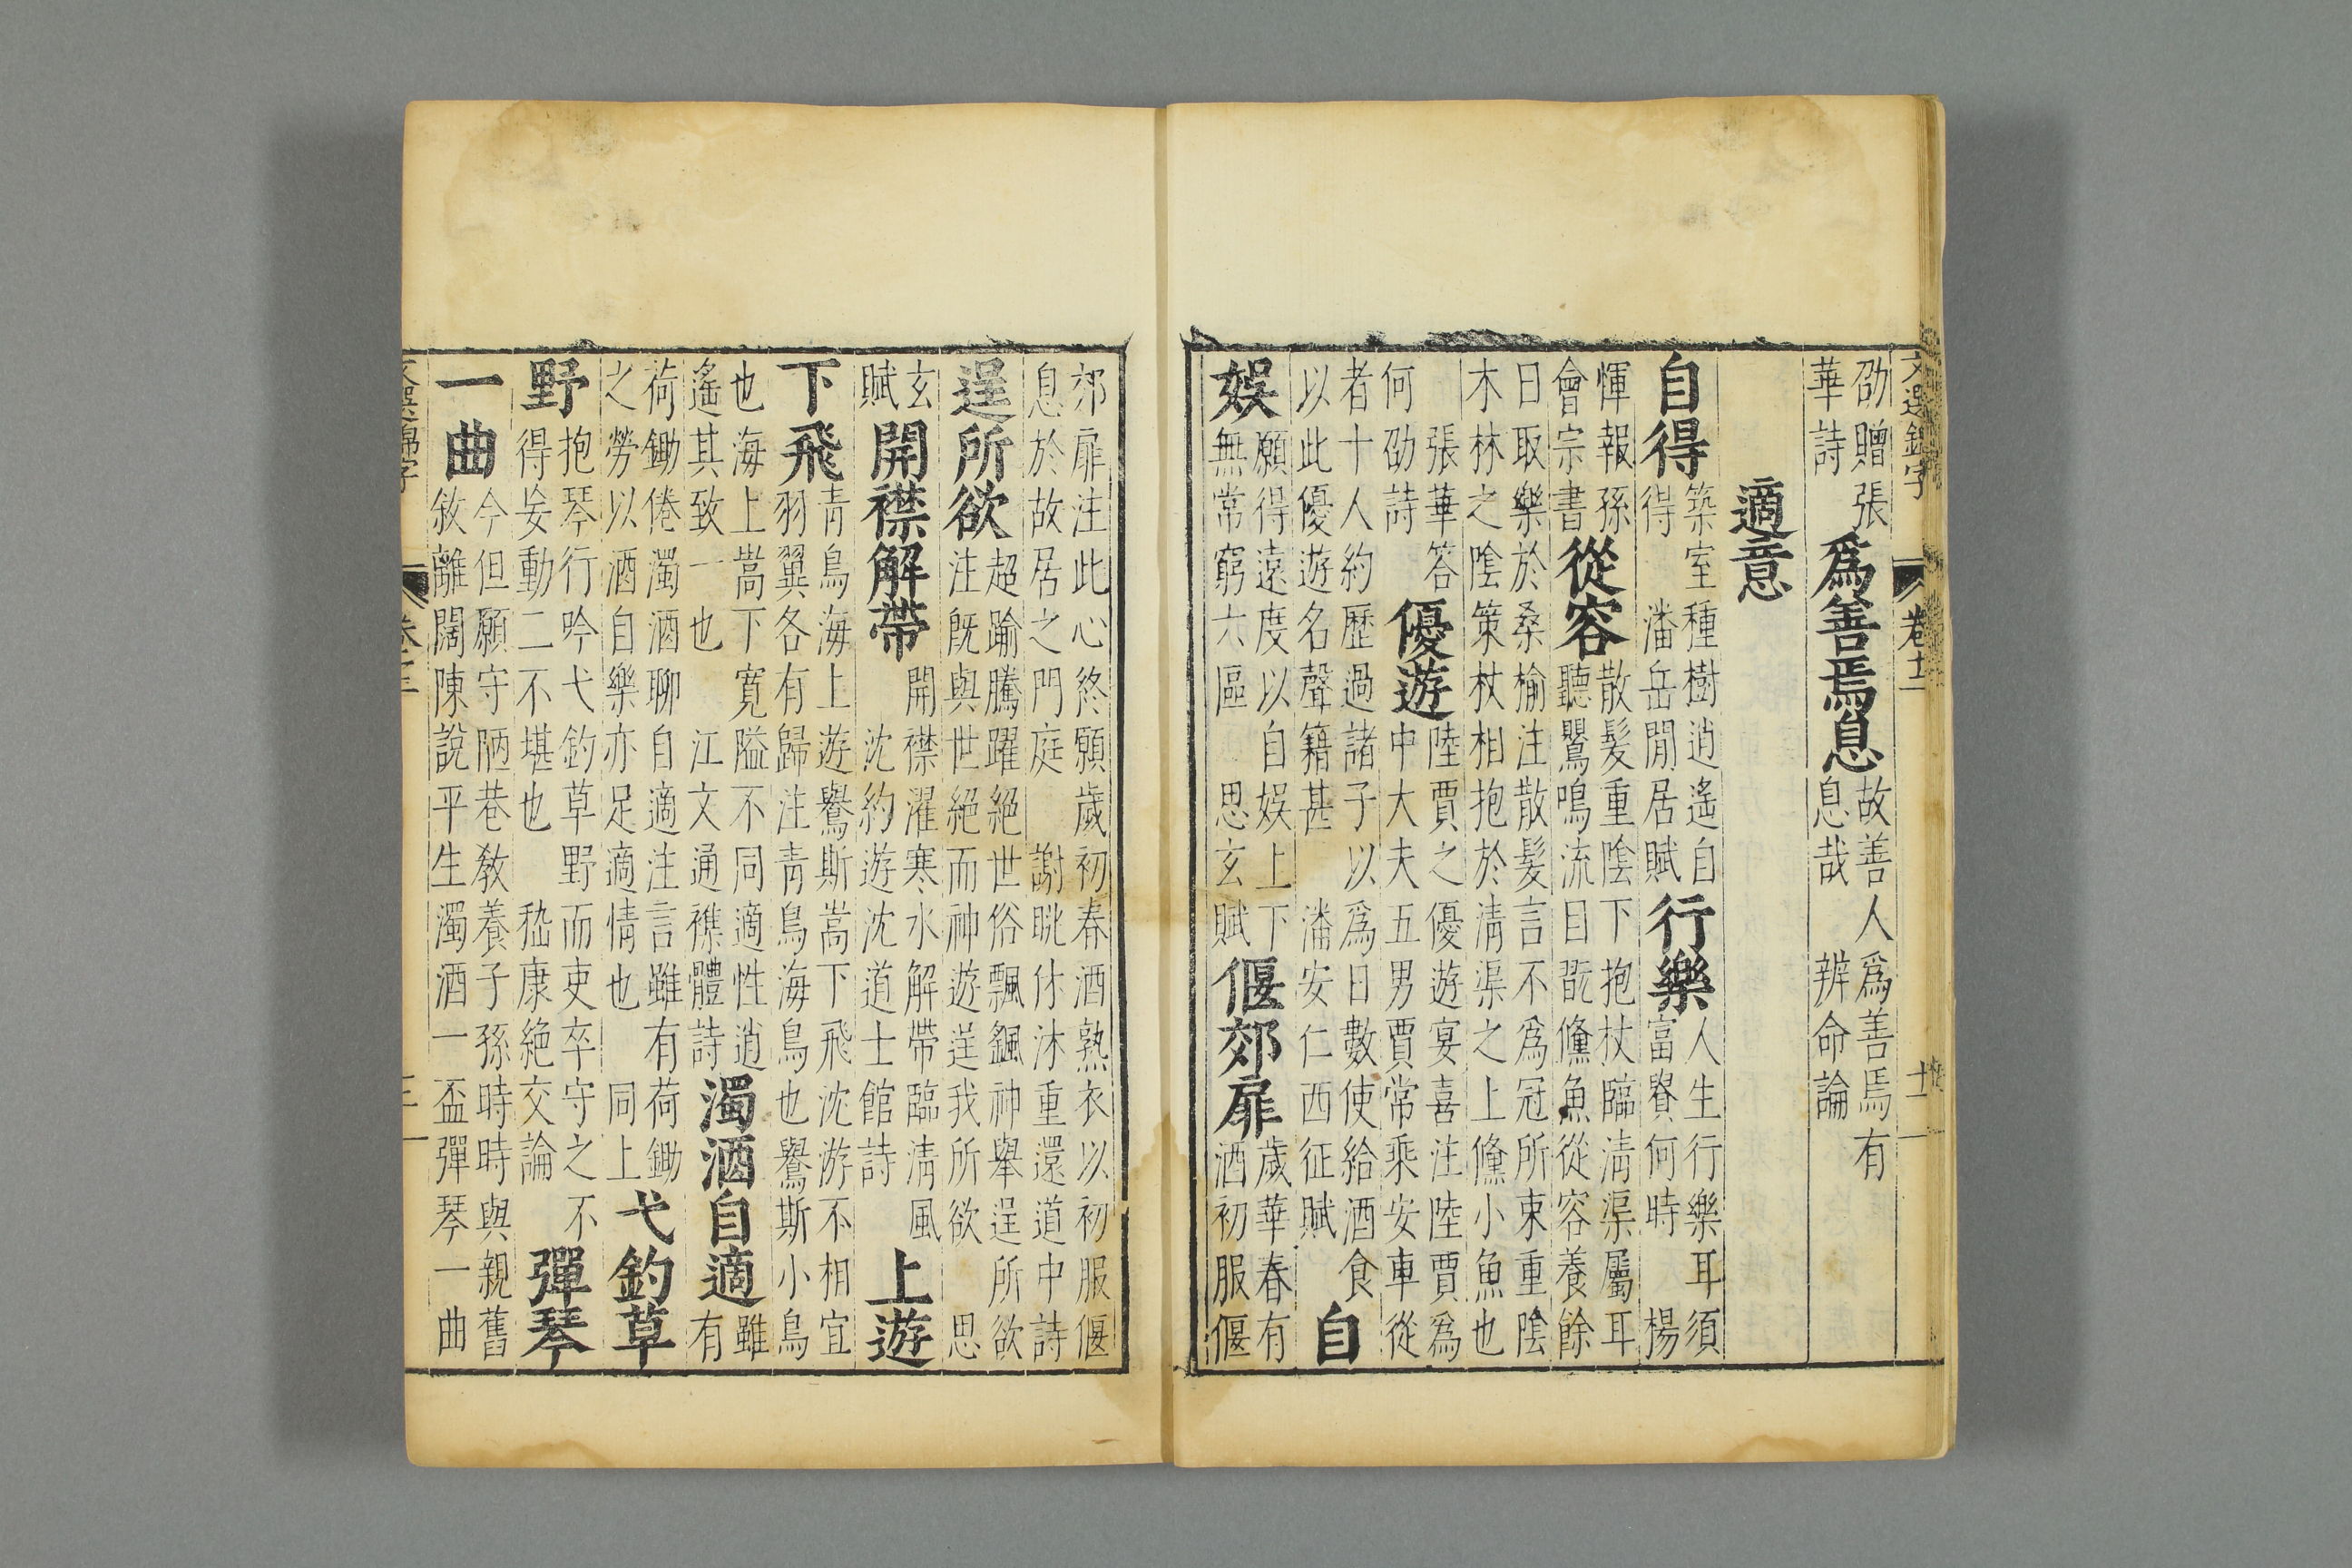 文選錦字 卷十二 十二
劭贈張
華詩
爲善焉息
故善人爲善焉有
息哉 辨命論
適意
自得
築室種樹逍遙自
得 潘岳閒居賦
行樂
人生行樂耳須
富貴何時 楊
惲報孫
會宗書
從容
散髮重陰下抱杖臨淸渠屬耳
聽鸎鳴流目翫儵魚從容養餘
日取樂於桑榆注散髮言不爲冠所束重陰
木林之陰策杖相抱於淸渠之上儵小魚也
張華答
何劭詩
優遊
陸賈之優遊宴喜注陸賈爲
中大夫五男賈常乘安車從
者十人約歷過諸子以爲日數使給酒食
以此優遊名聲籍甚 潘安仁西征賦
自
娛
願得遠度以自娛上下
無常窮六區 思玄賦
偃郊扉
歲華春有
酒初服偃
郊扉注此心終願歲初春酒熟衣以初服偃
息於故居之門庭 謝眺休沐重還道中詩
逞所欲
超踰騰躍絕世俗飄颻神舉逞所欲
注既與世絕而神遊逞我所欲 思
玄
賦
開襟解帶
開襟濯寒水解帶臨淸風
沈約遊沈道士館詩
上遊
下飛
靑鳥海上遊鸒斯蒿下飛沈游不相宜
羽翼各有歸注靑鳥海鳥也鸒斯小鳥
也海上蒿下寬隘不同適性逍
遙其致一也 江文通襍體詩
濁酒自適
雖
有
荷鋤倦濁酒聊自適注言雖有荷鋤
之勞以酒自樂亦足適情也 同上
弋釣草
野
抱琴行吟弋釣草野而吏卒守之不
得妄動二不堪也 嵇康絕交論
彈琴
一曲
今但願守陋巷敎養子孫時時與親舊
敘離闊陳說平生濁酒一盃彈琴一曲
文選錦字